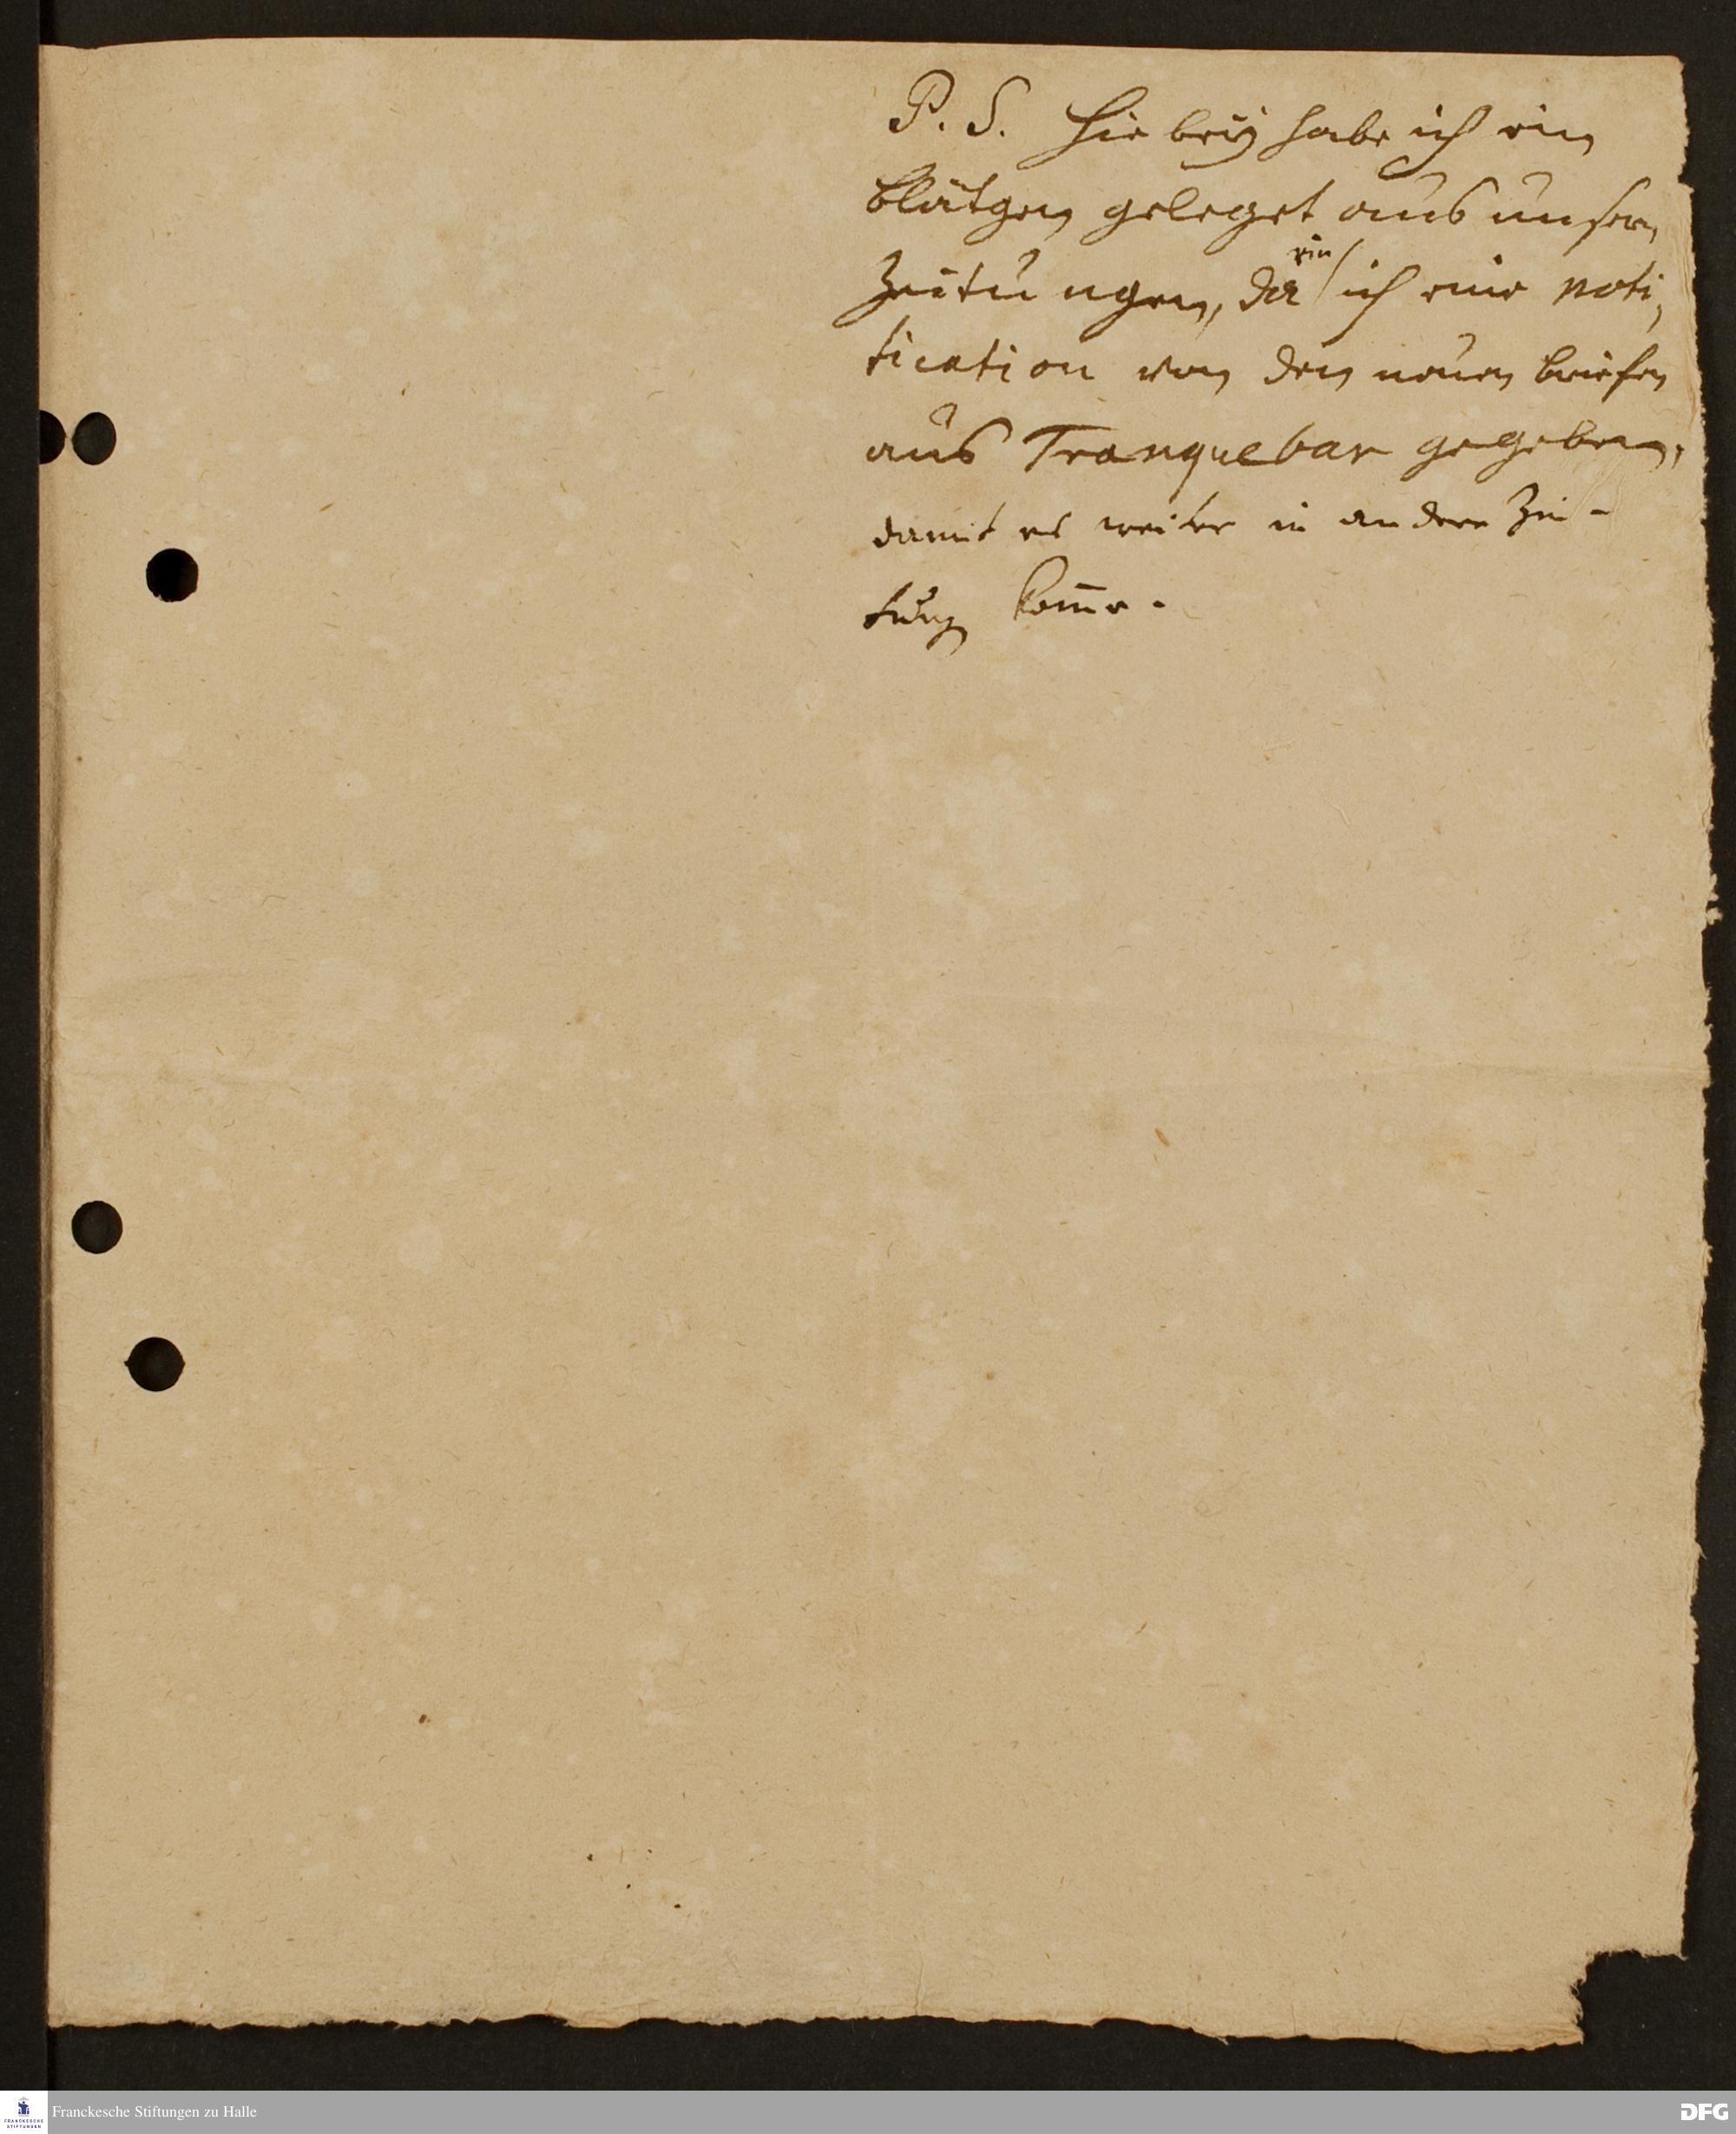 P. S. Hie bey habe ich ein
blätgen geleget aus unsern
Zeitungen, da ich eine noti,
rin
fication von den neuen briefen
aus Tranquebar gegeben,
damit es weiter in andere Zei-
tung kom̄e.
Franckesche Stiftungen zu Halle
FRANCKESCHE
STIFTUNGEN
DFG